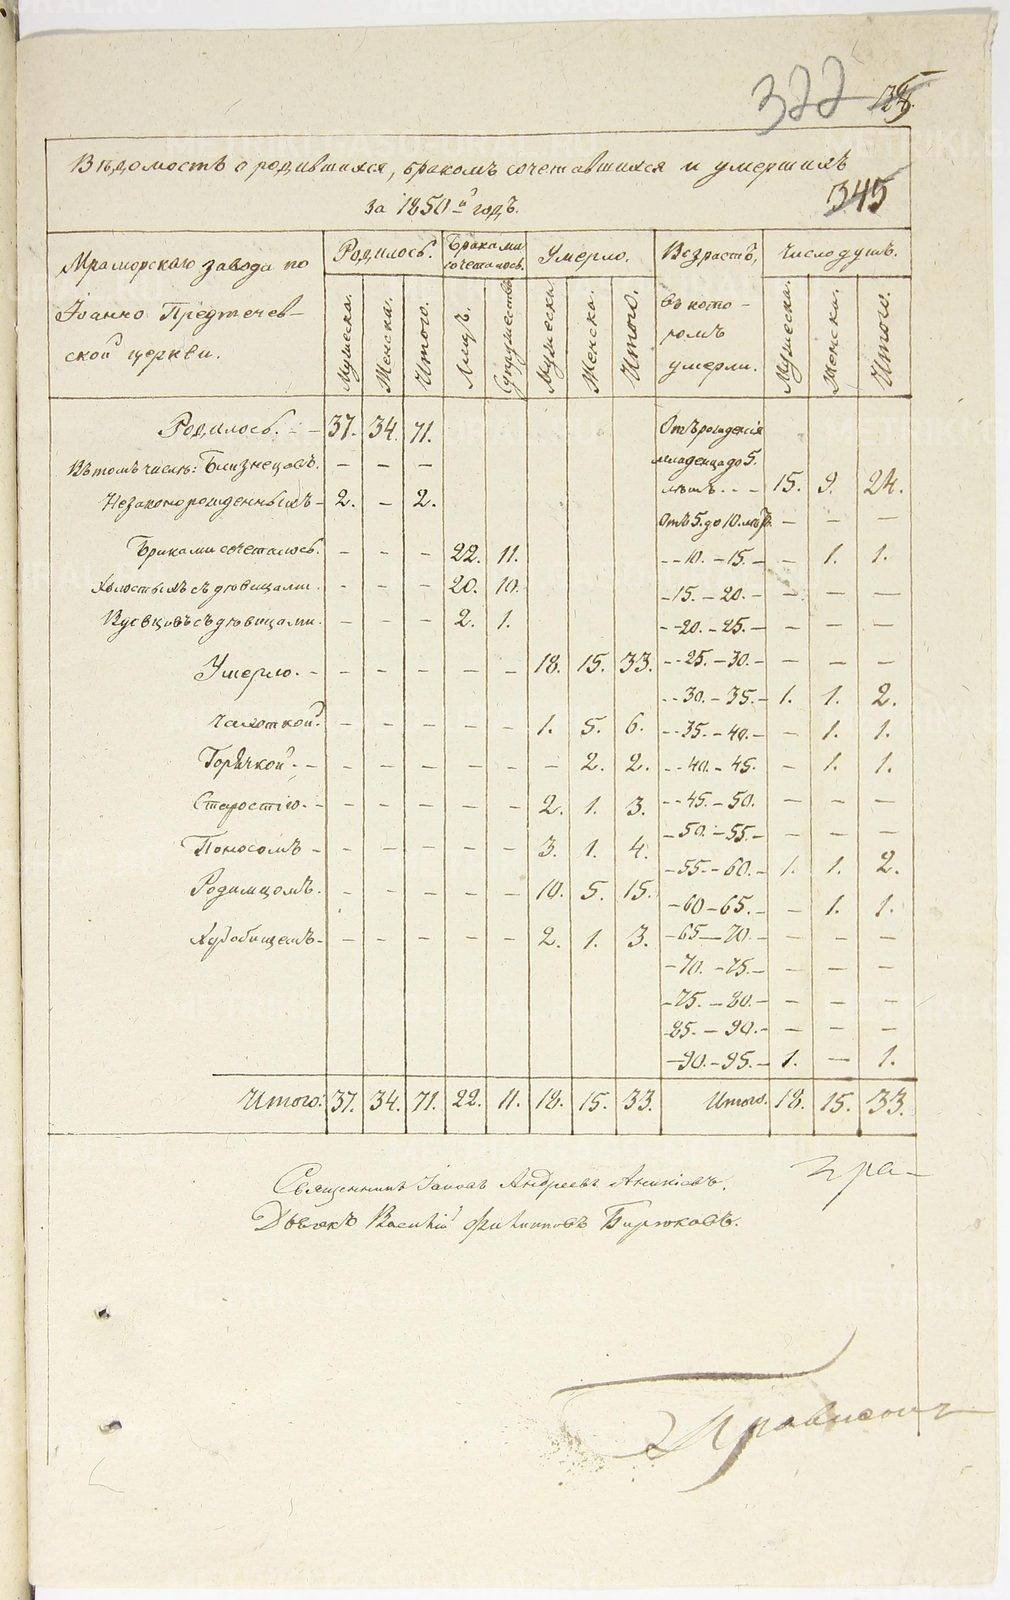 322
345
Вѣдомость о родившихся, бракомъ сочетавшихся и умершихъ
за 1850й годъ.
Мраморскаго завода по
Іоанно Предтечев-
ской церкви.
Родилось. Браками сочеталось. Умерло. Возрастъ, Число душъ.
въ кото-
ромъ
умерли.
Мужеска. Женска. Итого. Лицъ. Супружествъ Мужеска. Женска. Итого. Мужеска. Женска. Итого.
Родилось. - - 37. 34. 71. Отъ рожденія
младенца до 5.
Въ томъ числѣ: Близнецовъ. - - -
лѣтъ. - - 15. 9. 24.
Незаконорожденныхъ - 2. - 2.
Отъ 5. до 10. лѣтъ. - - -
Браками сочеталось. - - - 22. 11. - - 10. - 15. - - 1. 1.
Холостыхъ съ дѣвицами. - - - 20. 10. - 15. - 20. - - - -
Вдовцовъ съ дѣвицами. - - - 2. 1. - - 20. - 25. - - - -
Умерло. - - - - - - 18. 15. 33. - - 25. - 30. - - - -
- - 30. - 35. - 1. 1. 2.
Чахоткой. - - - - - 1. 5. 6. - - 35. - 40. - - 1. 1.
Горячкой. - - - - - - - 2. 2. - - 40. - 45. - 1. 1.
Старостію. - - - - - - 2. 1. 3. - - 45. - 50. - - -
- 50. - 55. - - - -
Поносомъ - - - - - - 3. 1. 4.
- 55. - 60. - 1. 1. 2.
Родимцомъ. - - - - - 10. 5. 15.
- 60 - 65. - - 1. 1.
Худобищемъ - - - - - - 2. 1. 3. - 65 - 70. - - - -
- 70. - 75. - - - -
- 75. - 80. - - - -
85. - 90. - - - -
- 90. - 95. - 1. - 1.
Итого. 37. 34. 71. 22. 11. 18. 15. 33. Итого. 18. 15. 33.
Священникъ Іаковъ Андреевъ Аникіевъ.
Дьячекъ Василій Филипповъ Бирюковъ.